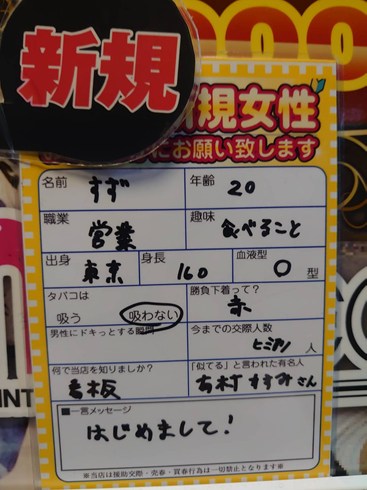 新規
新規女性
にお願い致します
名前 すず 年齢 20
職業 営業 趣味 食べること
出身 東京 身長 160 血液型 O 型
タバコは 吸う 吸わない 勝負下着って? 赤
男性にドキっとする瞬間 今までの交際人数 ヒミツ 人
何で当店を知りましたか? 看板 「似てる」と言われた有名人 有村すずみさん
■一言メッセージ
はじめまして!
※当店は援助交際・売春・買春行為は一切禁止となります※